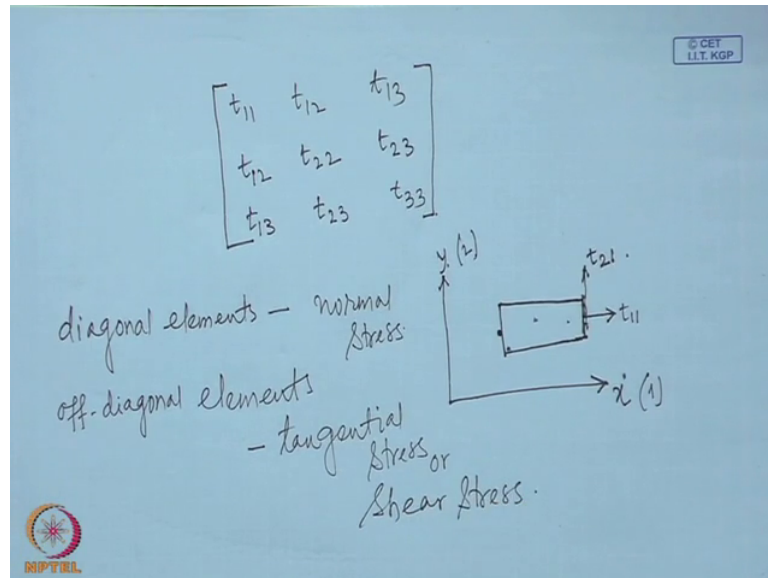 © CET
I.I.T. KGP
t11 t12 t13
t12 t22 t23
t13 t23 t33
y (2)
t21.
t11
x (1)
diagonal elements – normal
stress.
off-diagonal elements
– tangential
stress or
shear stress.
NPTEL